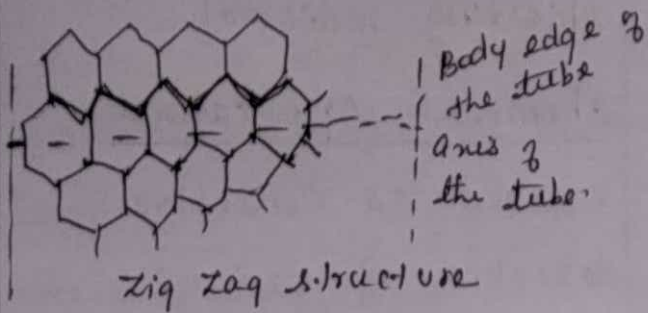 Body edge of
the tube
axes of
the tube.
Zig Zag structure